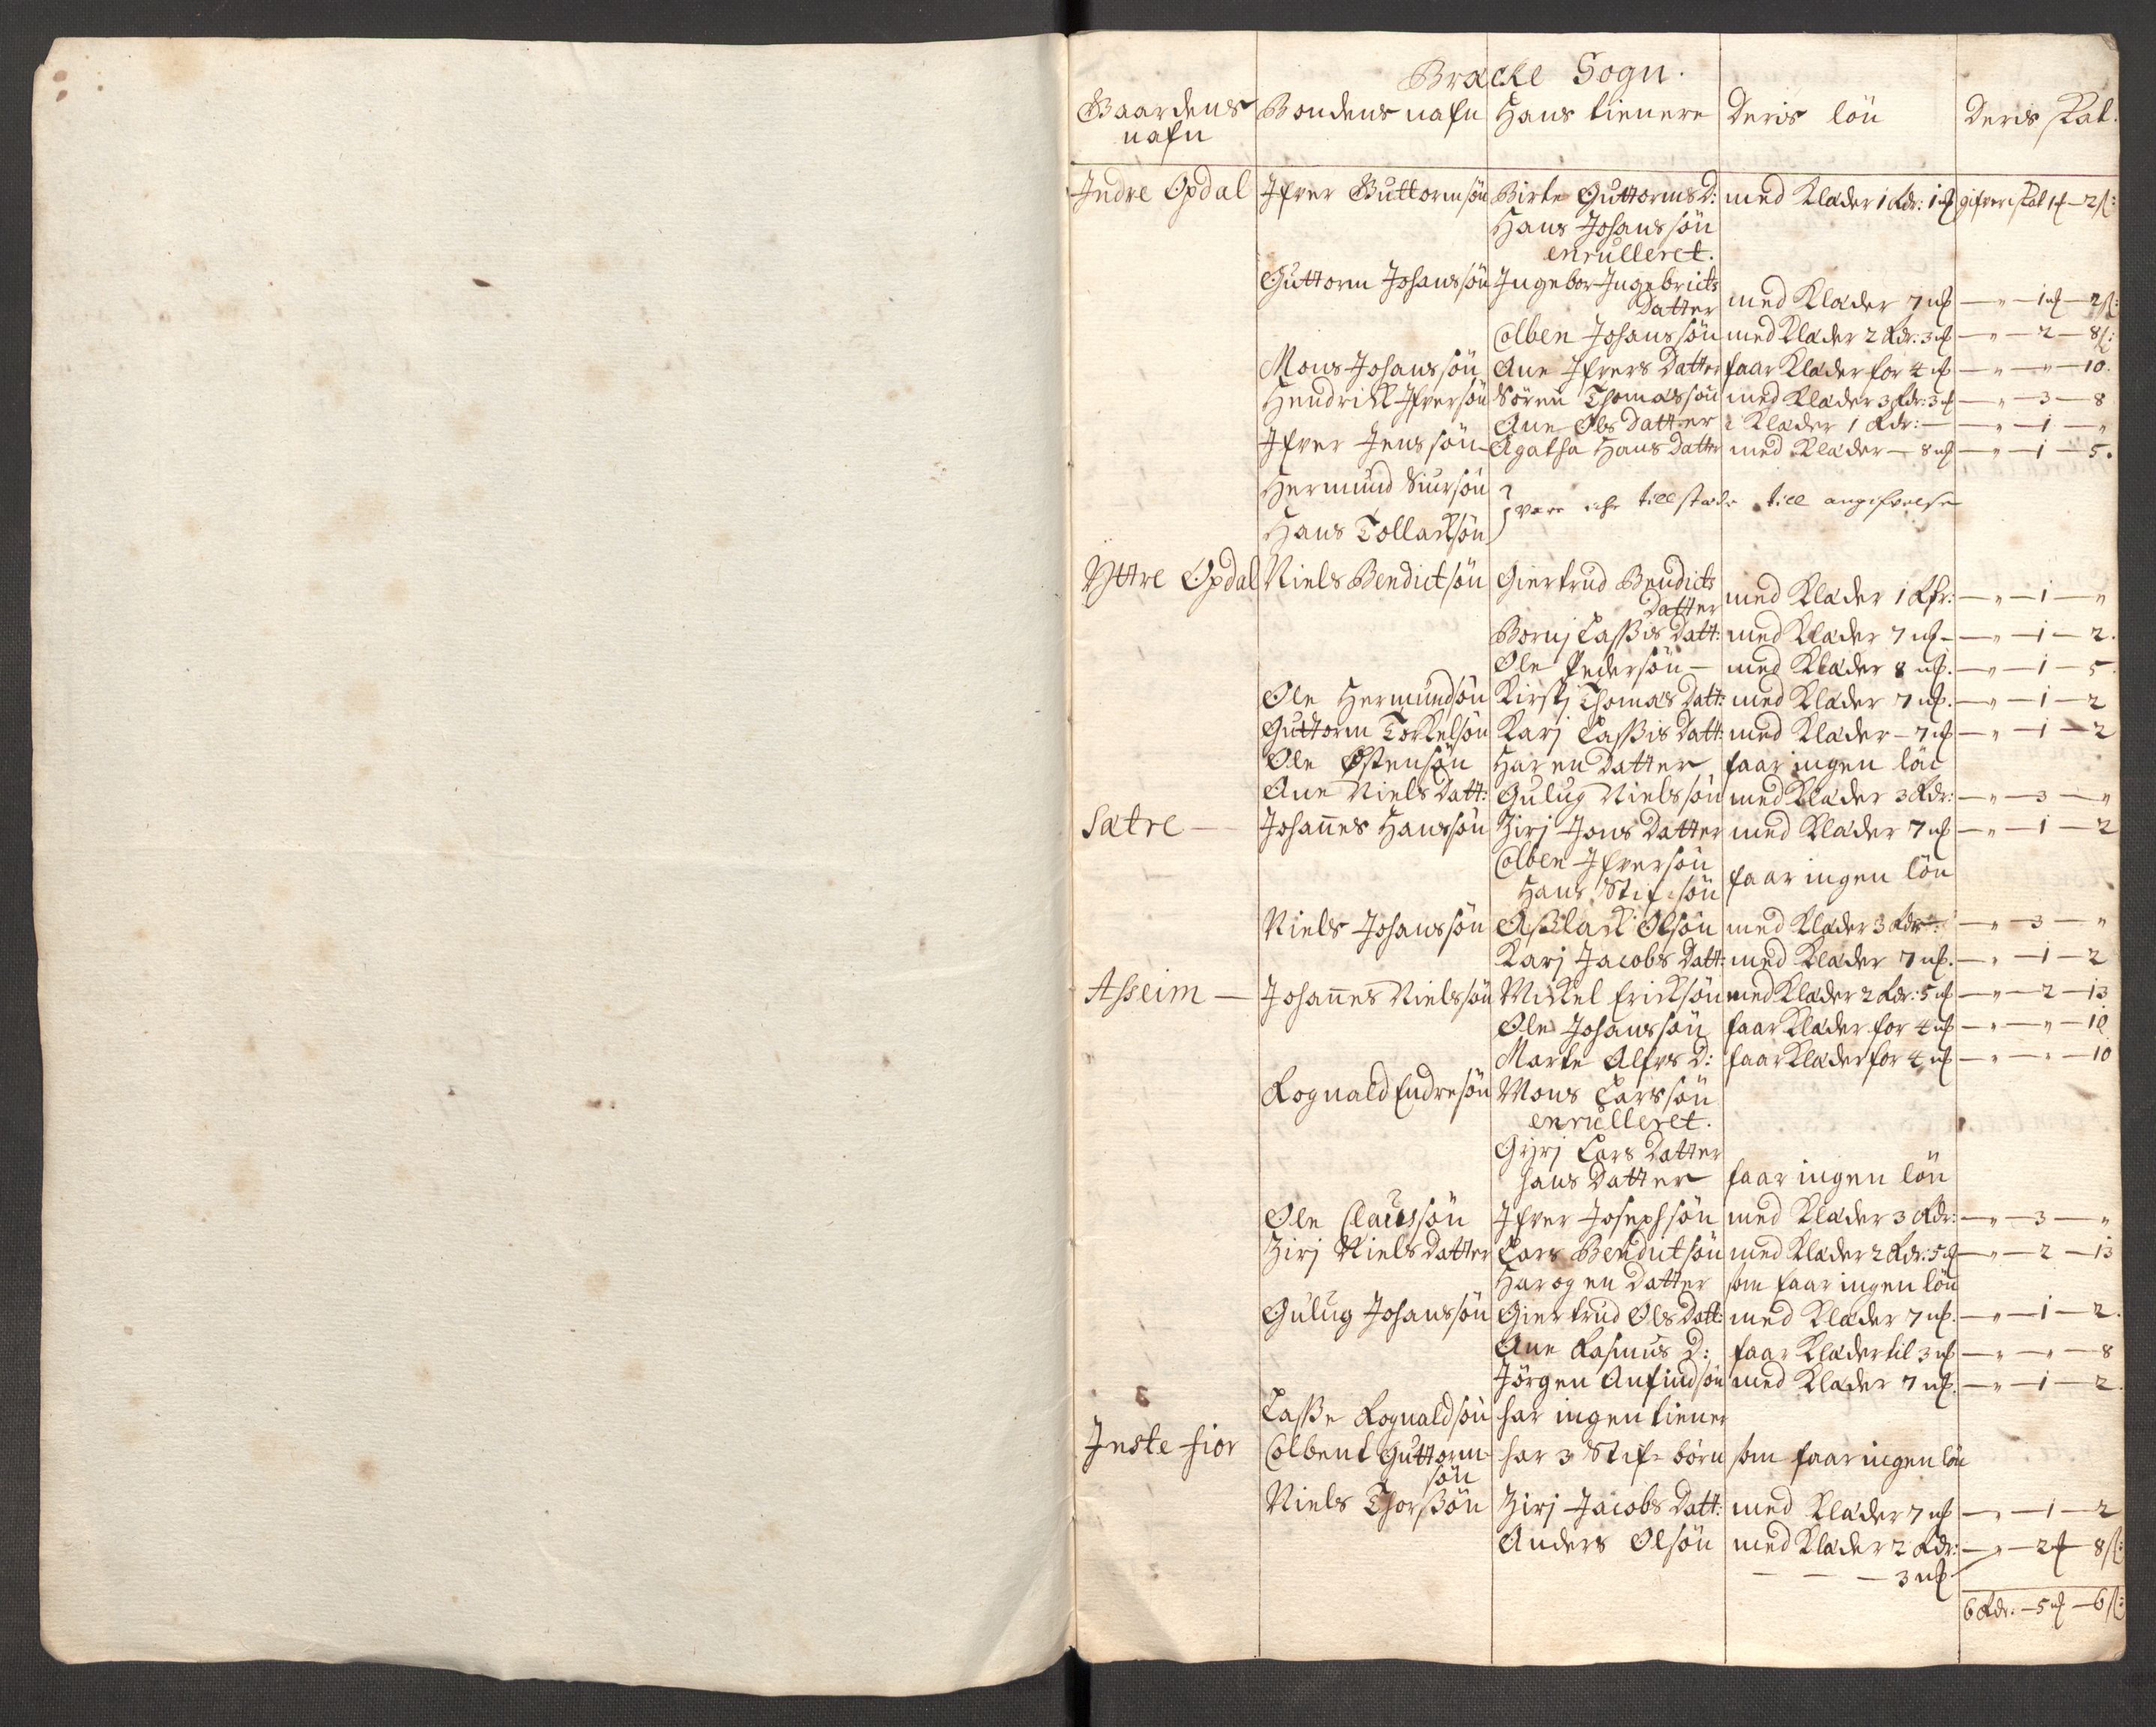 Bracke Sogn.
Gaardens nafn Bondens nafn Hans tienere Deris lön Deris skat.
Indre Opdal Ifver Guttormsön Birte Guttorms D: med Klæder 1 Rdr: 1 mk gifver i skat 1 mk — 2 ß:
Hans Johanssön
enrulleret.
Guttorm Johanssön Ingebor Ingebricts
Datter med Klæder 7 mk — " — 1 mk — 2 ß:
Colben Johanssön med Klæder 2 Rdr: 3 mk — " — 2 — 8 ß:
Mons Johanssön Ane Ifvers Datter faar Klæder for 4 mk — " — " — 10.
Hendrik Ifversön Sören Thomassön med Klæder 3 Rdr: 3 mk — " — 3 — 8
Ane Ols Datter i Klæder 1 Rdr: — " — 1 — "
Ifver Jenssön Agatha Hans Datter med Klæder — 8 mk — " — 1 — 5.
Hermund Siursön
Hans Tollacksön } vare iche tillstæde till angifvelse
Yttre Opdal Niels Bendictsön Giertrud Bendicts
Datter med Klæder 1 Rdr: — " — 1 — "
Borni Lasses Datt: med Klæder 7 mk — " — 1 — 2.
Ole Pedersön — med Klæder 8 mk. — " — 1 — 5.
Ole Hermundsön Kirstj Thomas Datt: med Klæder 7 mk. — " — 1 — 2
Guttorm Torkelsön Karj Lasses Datt: med Klæder — 7 mk — " — 1 — 2
Ole Östensön Har en Datter faar ingen lön
Ane Niels Datt: Gulug Nielssön med Klæder 3 Rdr: — " — 3 — "
Sætre — Johannes Hanssön Zirj Jons Datter med Klæder 7 mk — " — 1 — 2
Colben Ifversön
Hans Stifsön faar ingen lön
Niels Johanssön Asslack Olsön med Klæder 3 Rdr: — " — 3 — "
Karj Jacobs Datt: med Klæder 7 mk. — " — 1 — 2
Asseim — Johannes Nielssön Mickel Ericksön med Klæder 2 Rdr: 5 mk — " — 2 — 13
Ole Johanssön faar Klæder for 4 mk — " — " — 10
Marte Alfvs D: faar Klæder for 4 mk — " — " — 10
Rognald Endresön Mons Larssön
enrulleret.
Gyrj Lars Datter
hans Datter faar ingen lön
Ole Claussön Ifver Josephsön med Klæder 3 Rdr: — " — 3 — "
Zirj Niels Datter Lars Bendictsön med Klæder 2 Rdr: 5 mk — " — 2 — 13
Har og en Datter som faar ingen lön
Gulug Johanssön Giertrud Ols Datt: med Klæder 7 mk. — " — 1 — 2.
Ane Rasmus D: faar Klæder til 3 mk — " — " — 8
Jörgen Anfindsön med Klæder 7 mk. — " — 1 — 2.
Lasse Rognaldsön har ingen tiener
Inste fior Colbent Guttorm-
sön har 3 Stif börn som faar ingen lön
Niels Thorssön Zirj Jacobs Datt: med Klæder 7 mk — " — 1 — 2
Anders Olsön med Klæder 2 Rdr: — " — 2 mk — 8 ß:
— — — 3 mk
6 Rdr: — 5 mk — 6 ß: